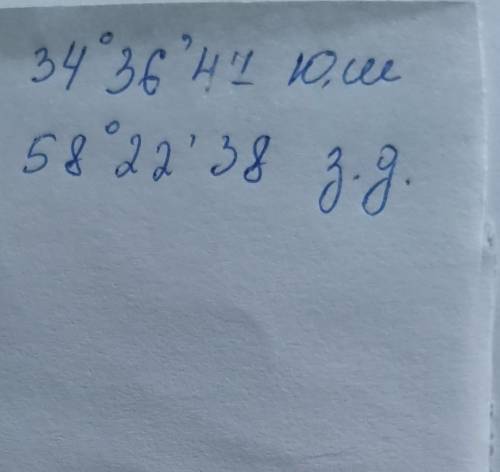 34°36'47 Ю.ш
58°22'38 з.д.